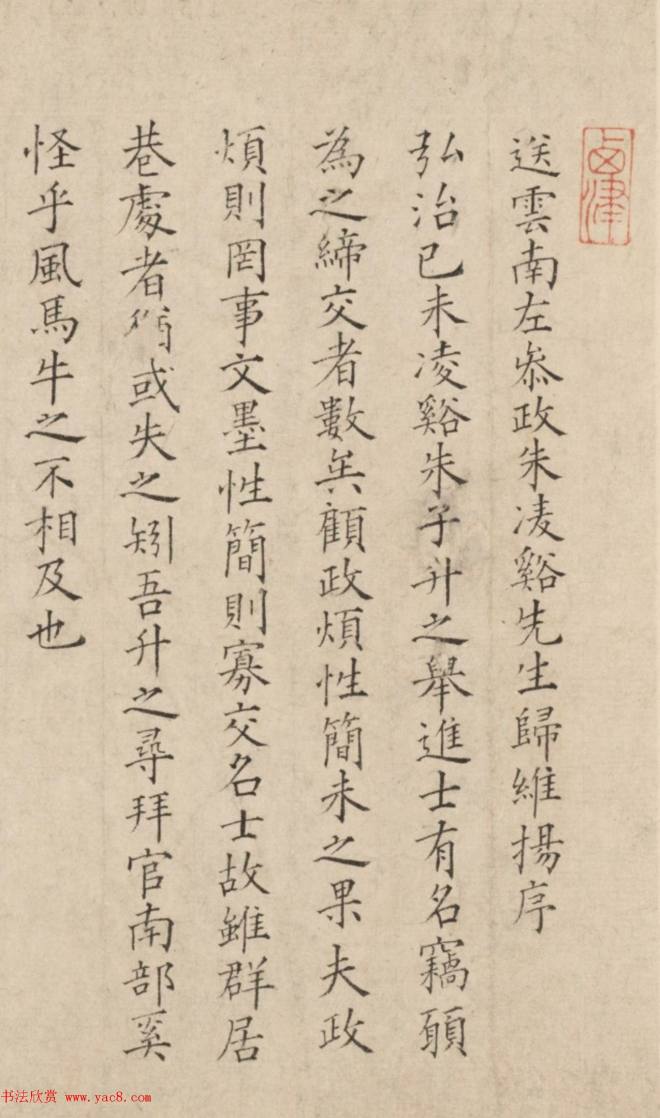 送雲南左叅政朱凌谿先生歸維揚序
弘治已未凌谿朱子升之舉進士有名竊願
為之締交者數矣顧政煩性簡未之果夫政
煩則罔事文墨性簡則寡交名士故雖群居
巷處者猶或失之矧吾升之尋拜官南部奚
怪乎風馬牛之不相及也
书法欣赏 www.yac8.com